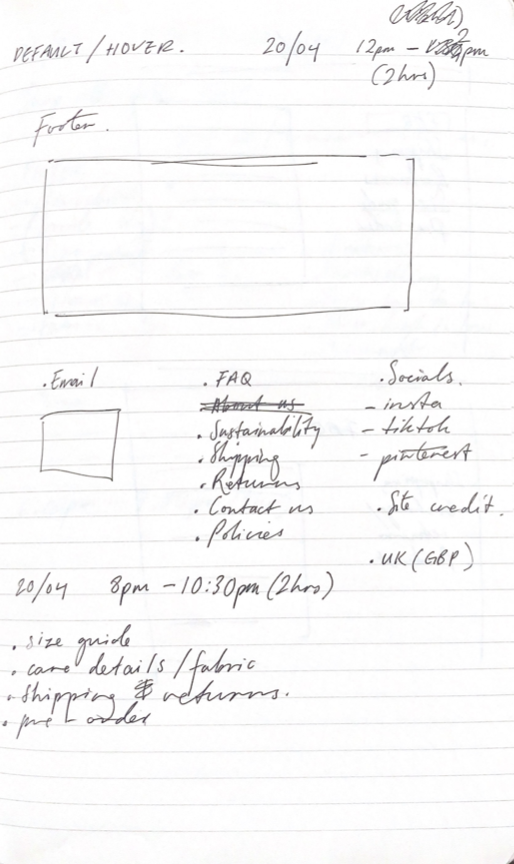 DEFAULT / HOVER. 20/04 12pm - 2pm
(2hrs)
Footer.
. Email
. FAQ
About us
. Sustainability
. Shipping
. Returns
. Contact us
. Policies
. Socials.
- insta
- tiktok
- pinterest
. Site credit.
. UK (GBP)
20/04 8pm - 10:30pm (2hrs)
. size guide
. care details / fabric
. shipping & returns.
. pre - order